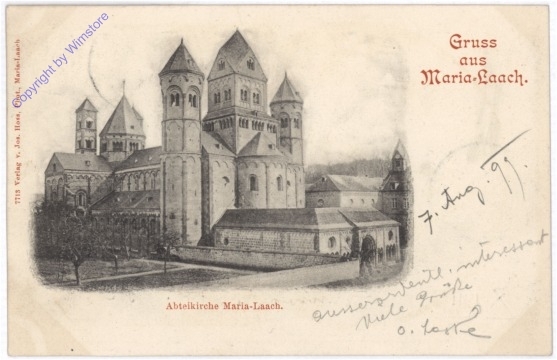 Gruss
aus
Maria-Laach.
7713 Verlag v. Jos. Hoss, Phot., Maria-Laach
Copyright by Wimstore
7. Aug. 99.
Abteikirche Maria-Laach.
interessant
Viele Grüße
O.